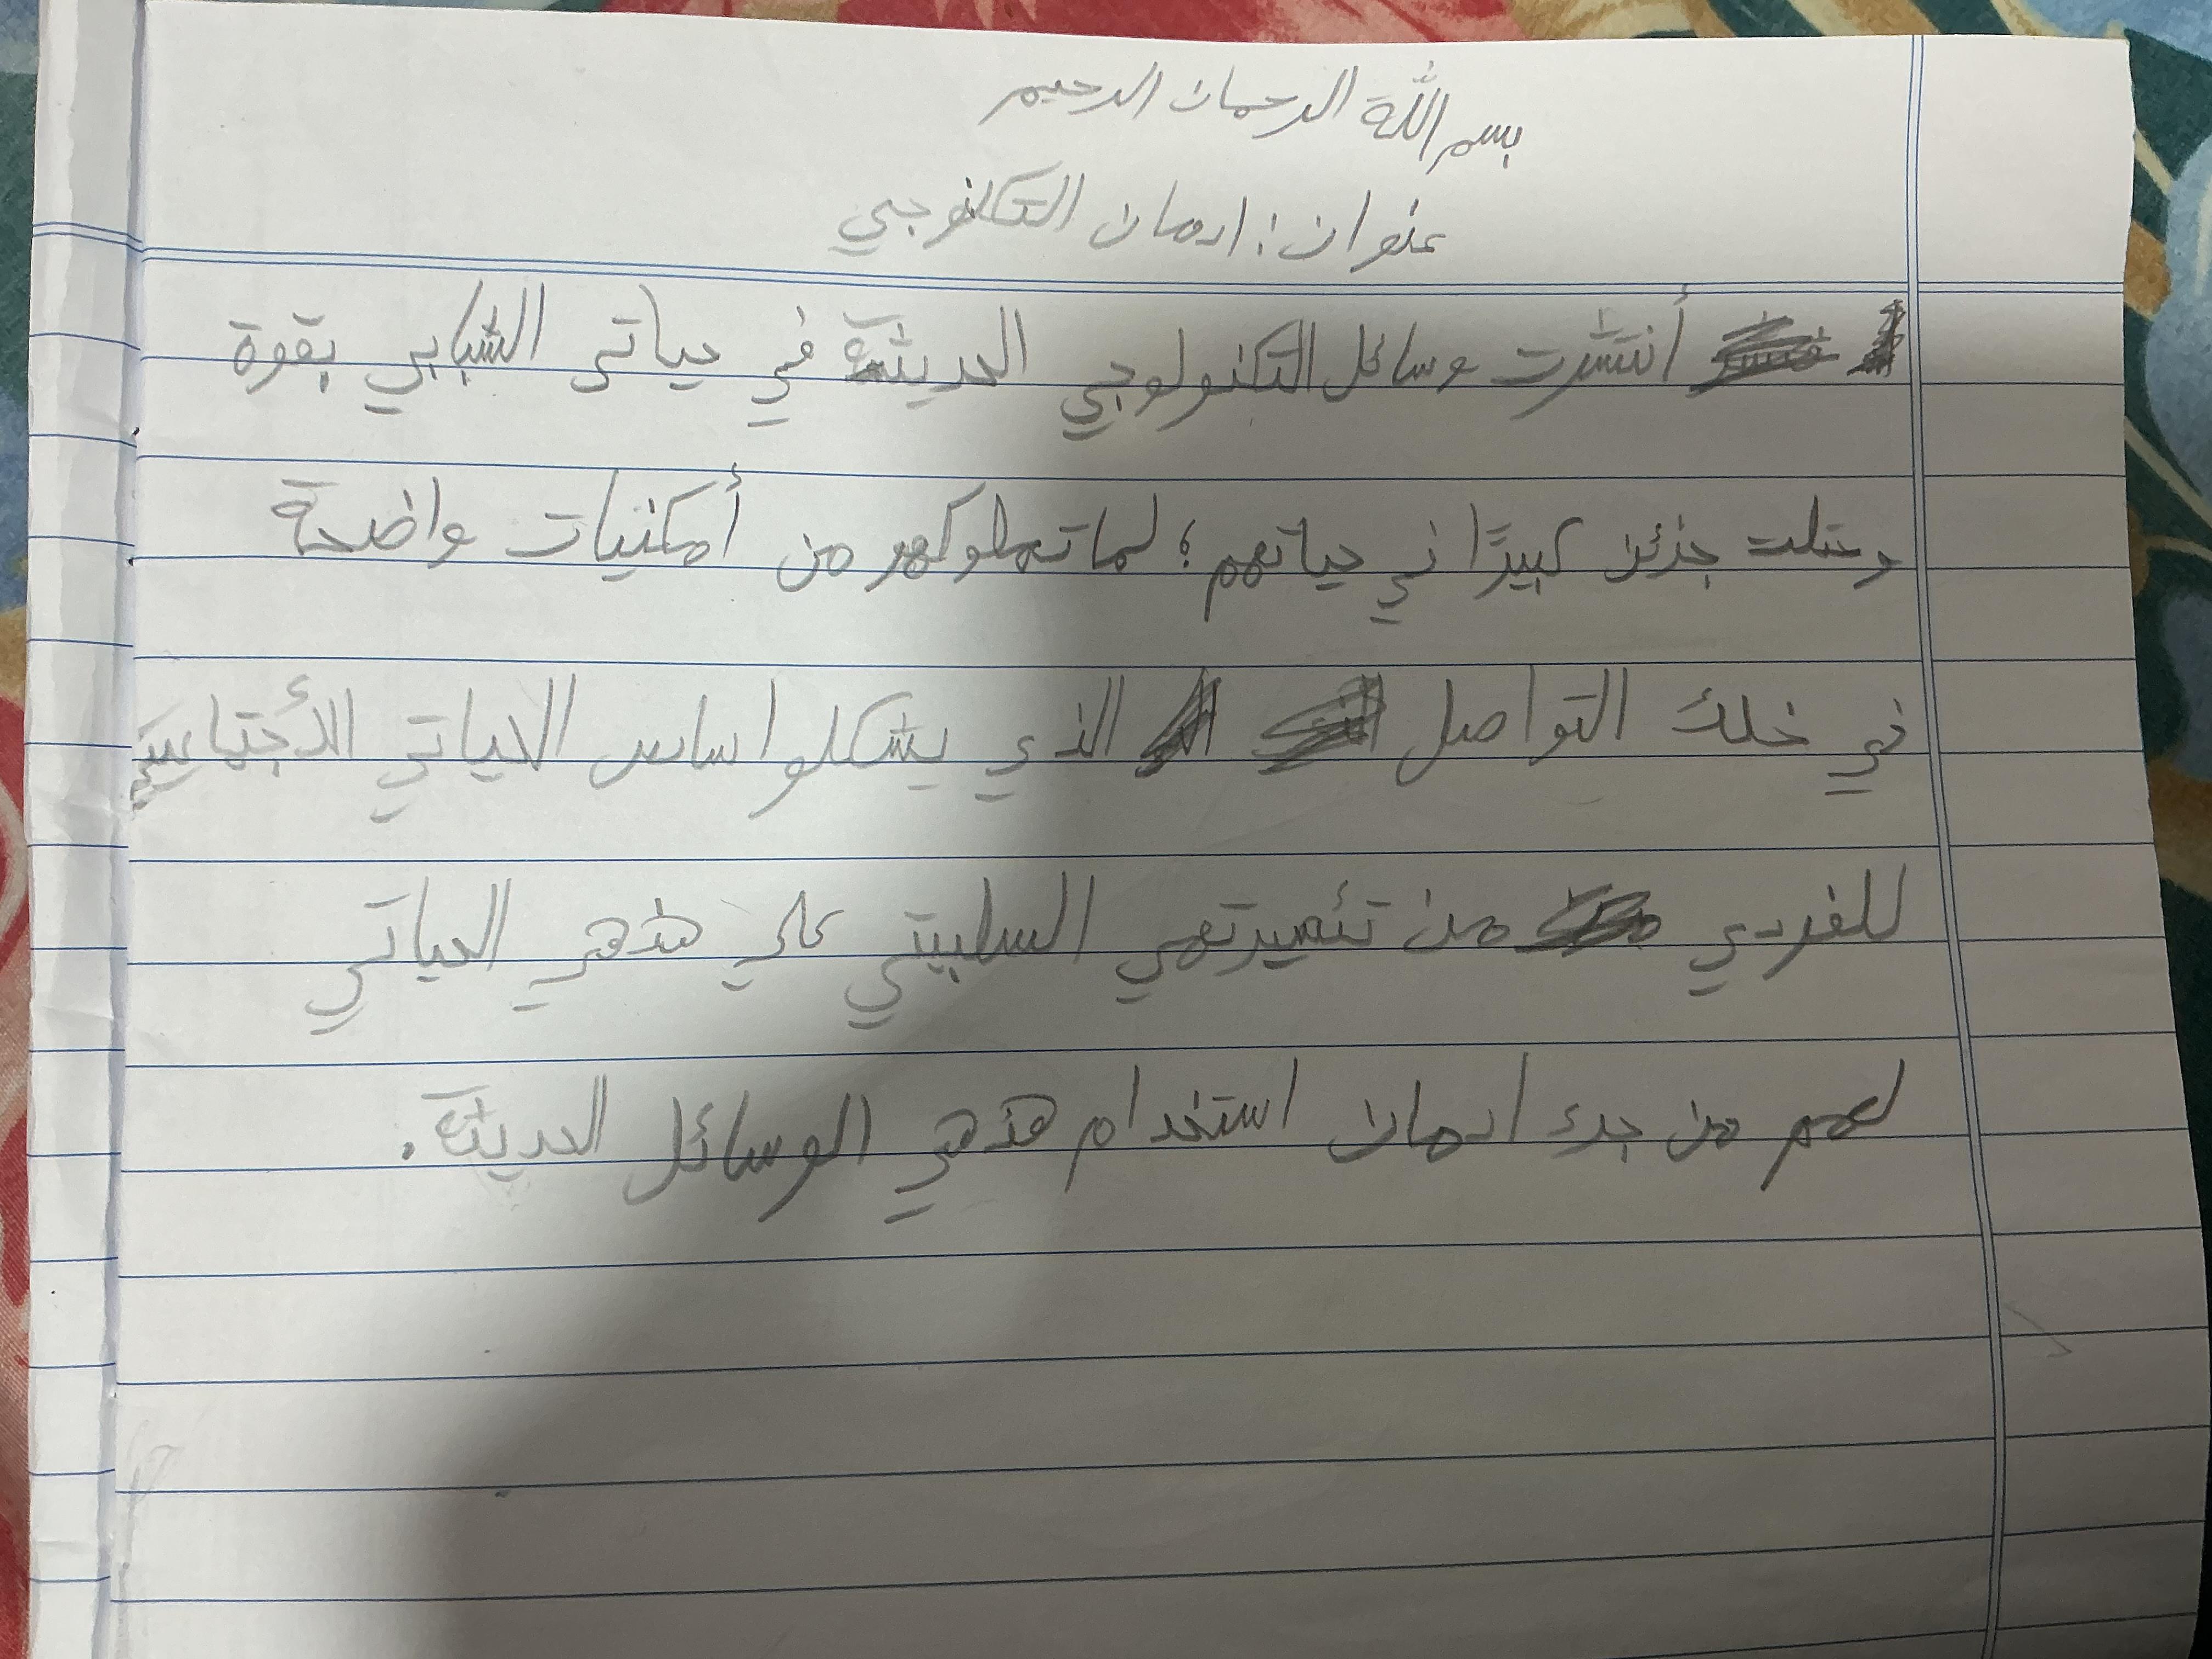 بسم اللة الرحمان الرحيم
عنوان: ادمان التكنوجي
أنتشرت وسائل التكنولوجي الحديثة في حياتي الشبابي بقوة
وحتلت جزئن كبيرًا في حياتهم؛ لما تملوكهو من أمكنيات واضحة
في خلك التواصل الذي يشكلو اساس الحياتي الأجتماعيتي
للفردي من تئثيرتهي السلبيتي علي هذهي الحياتي
لهم من جرء ادمان استخدام هذهي الوسائل الحديثة.